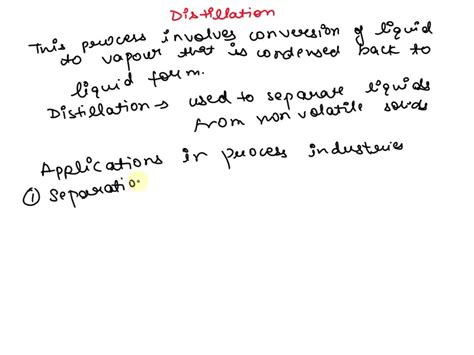 Distillation
This process involves conversion of liquid
to vapour that is condensed back to
liquid form.
Distillation → used to separate liquids
from non volatile solids
Applications in process industeries
① Separatio